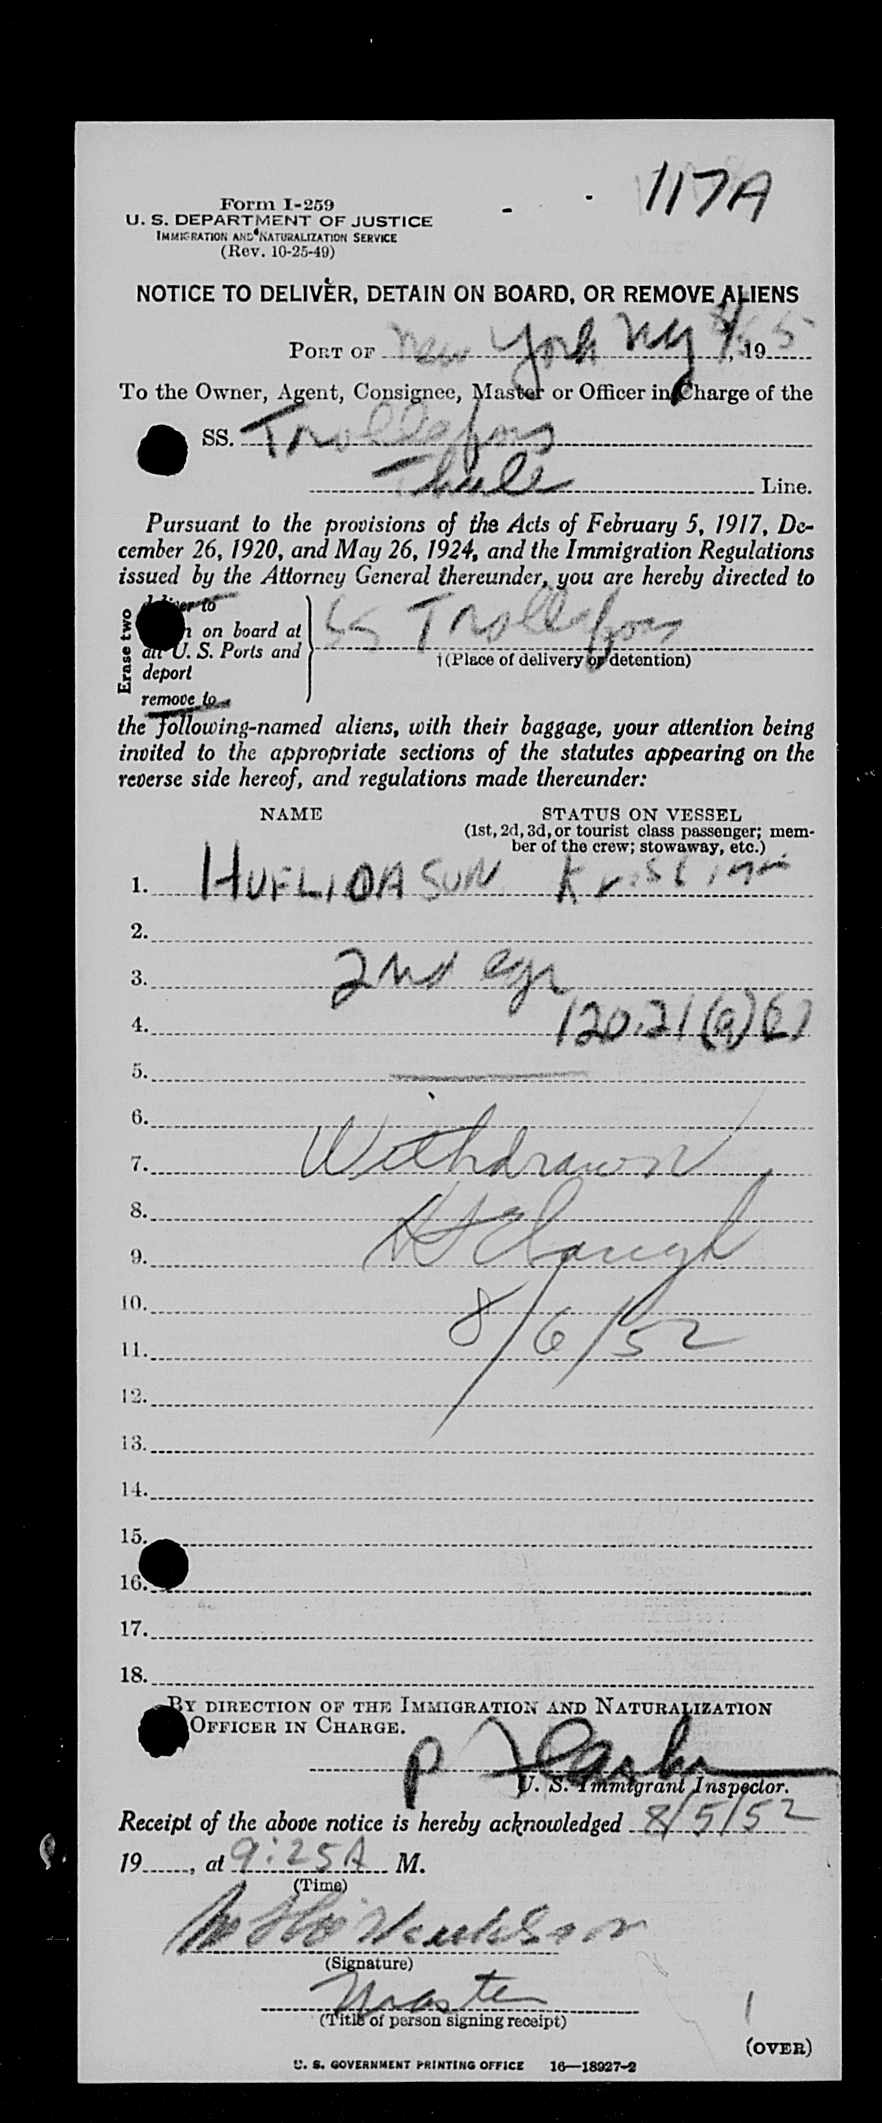 117A
Form I-259
U. S. DEPARTMENT OF JUSTICE
IMMIGRATION AND NATURALIZATION SERVICE
(Rev. 10-25-49)
NOTICE TO DELIVER, DETAIN ON BOARD, OR REMOVE ALIENS
PORT OF New York NY 8/5, 195
To the Owner, Agent, Consignee, Master or Officer in Charge of the
SS. Trollefors
Thule Line.
Pursuant to the provisions of the Acts of February 5, 1917, De-
cember 26, 1920, and May 26, 1924, and the Immigration Regulations
issued by the Attorney General thereunder, you are hereby directed to
Erase two
deliver to
on board at
all U. S. Ports and
deport
remove to
SS Trollefors
†(Place of delivery or detention)
the following-named aliens, with their baggage, your attention being
invited to the appropriate sections of the statutes appearing on the
reverse side hereof, and regulations made thereunder:
NAME STATUS ON VESSEL
(1st, 2d, 3d, or tourist class passenger; mem-
ber of the crew; stowaway, etc.)
1. Kristian
2.
3. 2nd
4. 120.21(a)
5.
6.
7. Withdrawn
8.
9.
10.
11. 8/6/52
12.
13.
14.
15.
16.
17.
18.
BY DIRECTION OF THE IMMIGRATION AND NATURALIZATION
OFFICER IN CHARGE.
U. S. Immigrant Inspector.
Receipt of the above notice is hereby acknowledged 8/5/52
19......, at 9:25 A M.
(Time)
(Signature)
Master
(Title of person signing receipt)
(OVER)
U. S. GOVERNMENT PRINTING OFFICE 16—18927-2